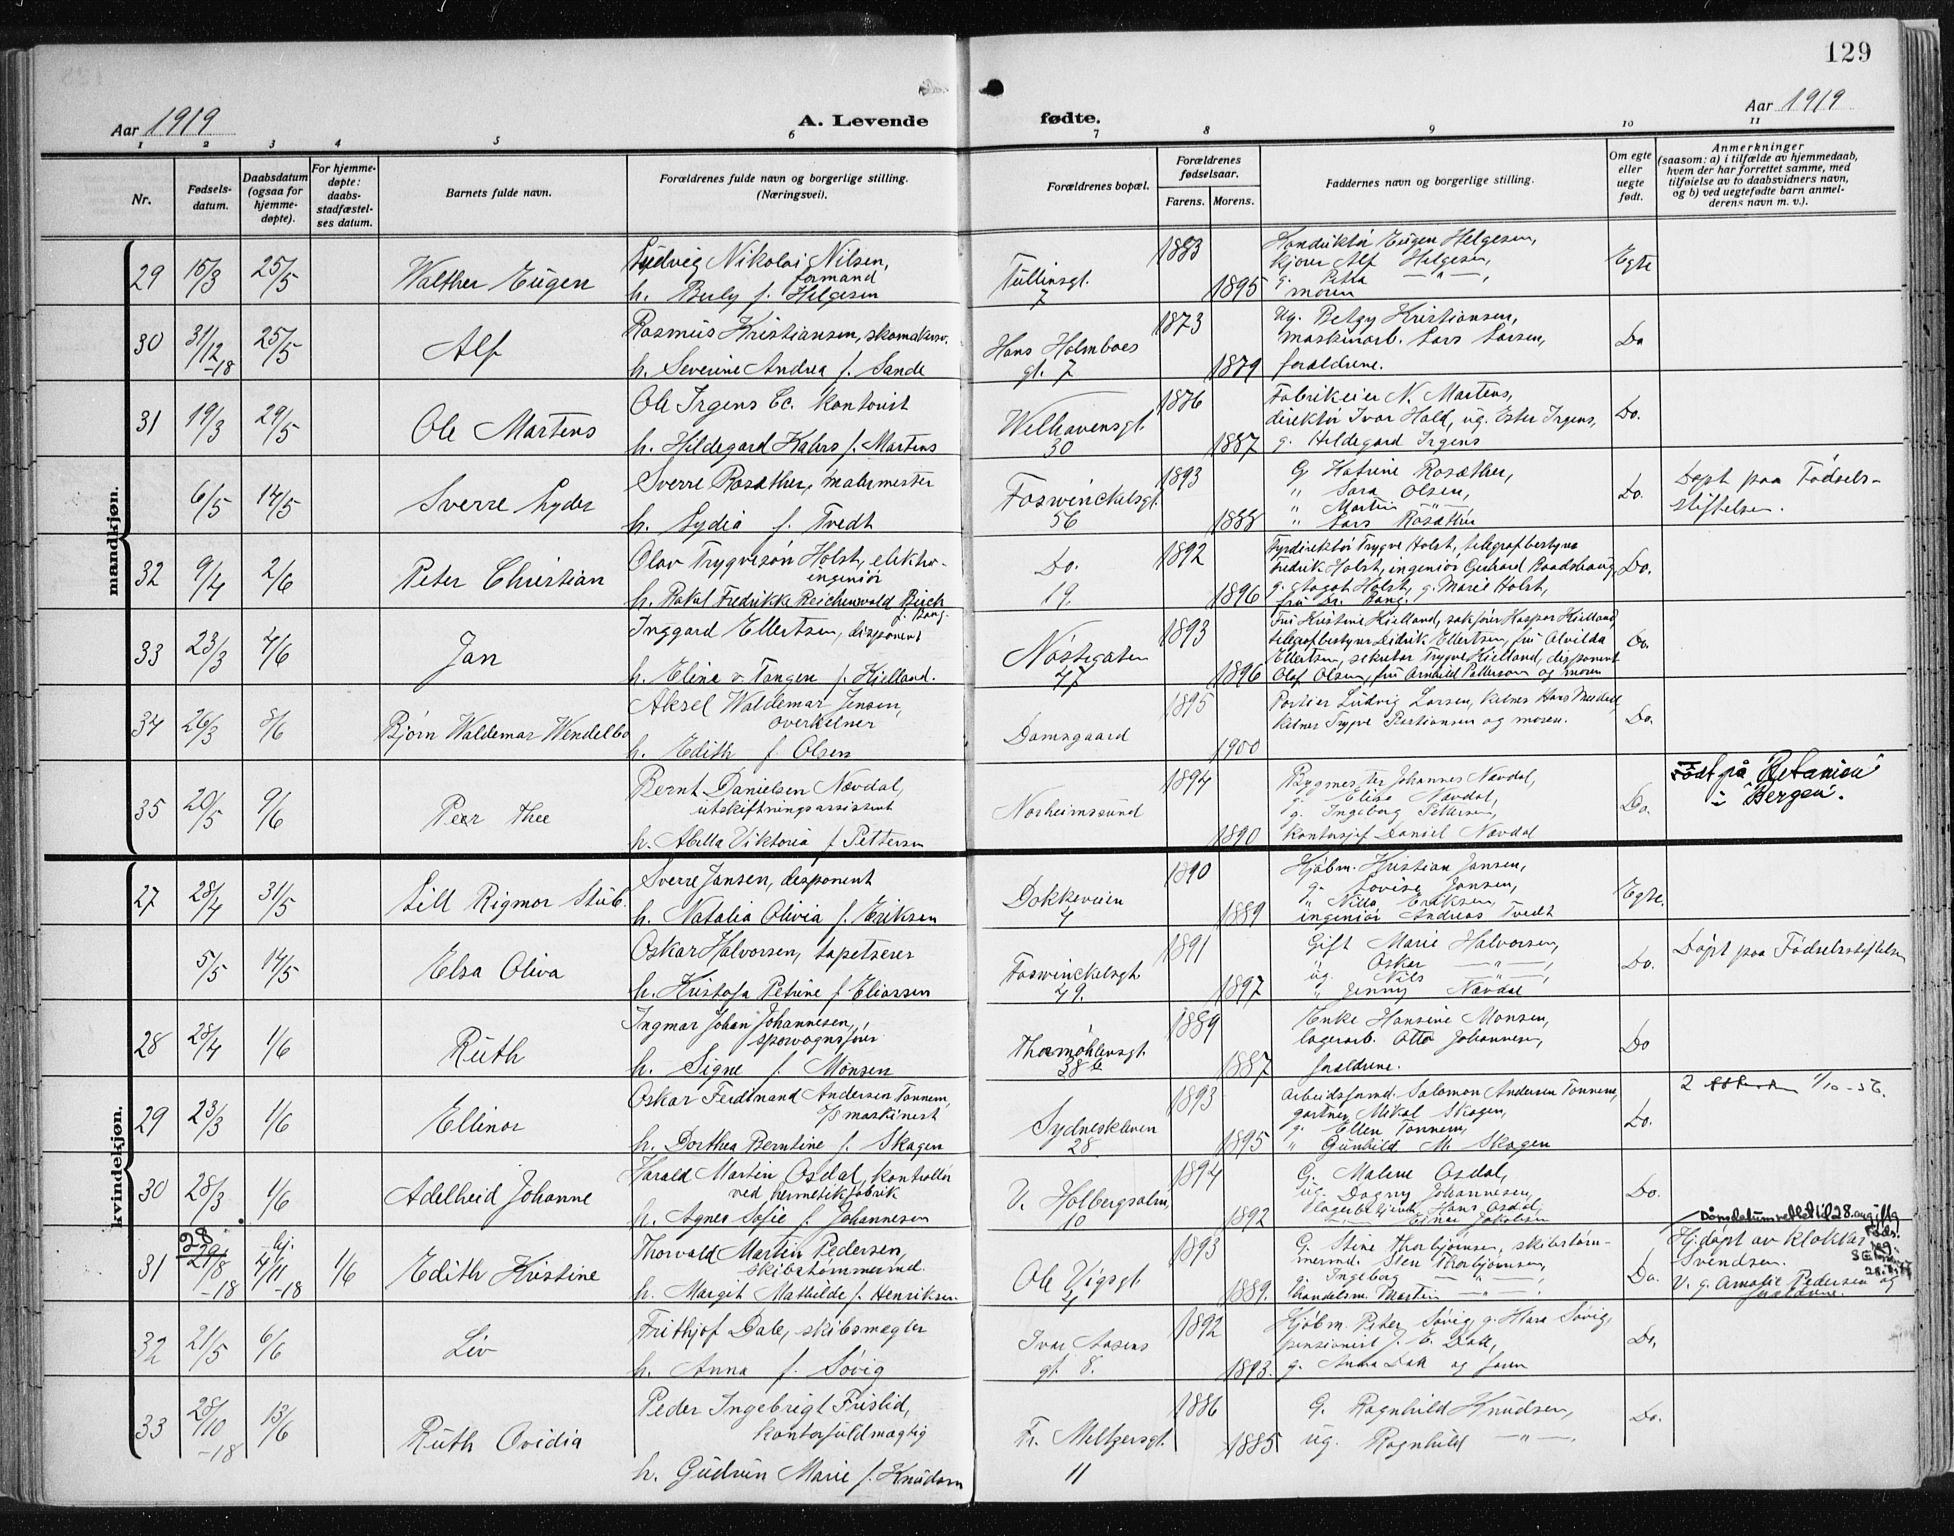 129
Aar 1919
A. Levende fødte.
Aar 1919
1 2 3 4 5 6 7 8 9 10 11
Nr.
Fødsels-
datum.
Daabsdatum
(ogsaa for
hjemme-
døpte).
For hjemme-
døpte:
daabs-
stadfæstel-
ses datum.
Barnets fulde navn.
Forældrenes fulde navn og borgerlige stilling.
(Næringsvei).
Forældrenes bopæl.
Forældrenes
fødselsaar.
Farens. Morens.
Faddernes navn og borgerlige stilling.
Om egte
eller
uegte
født.
Anmerkninger
(saasom: a) i tilfælde av hjemmedaab,
hvem der har forrettet samme, med
tilføielse av to daabsvidners navn,
og b) ved uegtefødte barn anmel-
derens navn m. v.).
mandkjøn.
29 15/3 25/5 Walther Eugen
Ludvig Nikolai Nilsen,
formand
h. Berly f. Helgesen
Tullinsgt.
7
1883 1895
Konduktør Eugen Helgesen,
kjører Alf Helgesen,
g. Petra — " —,
moren
Egte
30 31/12 -18 25/5 Alf
Rasmus Kristiansen, skomakersv.
h. Severine Andrea f. Sande
Hans Holmboes
gt. 7
1873 1879
Ug. Betzy Kristiansen,
maskinarb. Lars Larsen,
forældrene.
Do
31 19/3 29/5 Ole Martens
Ole Irgens kontorist
h. Hildegard f. Martens
Welhavensgt.
30
1876 1887
Fabrikeier N. Martens,
direktør Ivar Hald, ug. Ester Irgens,
g. Hildegard Irgens
Do.
6/5 14/5 Sverre Lyder
Sverre Rosæther, malermester
h. Lydia f. Tvedt
Foswinckelsgt.
56
1893 1888
G. Katrine Rosæther,
" Sara Olsen,
" Martin — " —
" Lars Rosæther
Do.
Døpt paa Fødsels-
stiftelsen.
32 9/4 2/6 Peter Christian
Olav Trygveson Holst, elektro-
ingeniør
h. Rakel Fredrikke Reichenwald Birch
f. Bang.
Do.
19.
1892 1896
Fyrdirektør Trygve Holst, telegrafbestyrer
Fredrik Holst, ingeniør Gerhard
g. Aagot Holst, g. Marie Holst,
fru Dr. Bang.
Do.
33 23/3 7/6 Jan
Inggard Ellertsen, disponent
h. Elina v. Tangen f. Kielland.
Nøstegaten
47
1893 1896
Fru Kristine Kielland, sakfører Kasper Kielland
telegrafbestyrer Didrik Ellertsen, fru Alvilda
Ellertsen, sekretær Trygve Kielland, disponent
Olaf Olsen, fru Arnhild Patterson og moren
Do.
34 26/3 8/6 Bjørn Waldemar Wendelbo
Aksel Waldemar Jensen,
overkelner
h. Edith f. Olsen
Damsgaard
1895 1900
Portier Ludvig Larsen, kelner Hans
kelner Trygve og moren.
Do.
35 20/5 9/6 Peer Thee
Bernt Danielsen Nævdal,
utskiftningsassistent
h. Abella Viktoria f. Pettersen
Norheimssund
1894 1890
Bygmester Johannes Nævdal,
g. Elisa Nævdal,
g. Ingeborg Pettersen,
kontorsjef Daniel Nævdal
Do.
Født på "Betanien"
i Bergen.
kvindekjøn.
27 28/4 31/5 Lill Rigmor Stub.
Sverre Jansen, disponent
h. Natalia Olivia f. Eriksen
Dokkeveien
4
1890 1889
Kjøbm. Kristian Jansen,
g. Lovise Jansen,
" Nilla Eriksen,
ingeniør Andreas Tvedt
Egte.
5/5 14/5 Elsa Oliva
Oskar Halvorsen, tapetserer
h. Kristofa Petrine f. Eliassen
Foswinckelsgt.
49.
1891 1897
Gift Marie Halvorsen,
" Oskar — " —,
ug. Nils — " —,
" Jenny Nævdal
Do.
Døpt paa Fødselsstiftelsen
28 28/4 1/6 Ruth
Ingmar Johan Johannesen,
sporvognsfører
h. Signe f. Monsen
Thormøhlensgt.
38 b
1889 1887
Enke Hansine Monsen,
lagerarb. Otto Johannesen,
forældrene.
Do
29 23/3 1/6 Ellinor
Oskar Ferdinand Andersen Tonnem,
maskinist
h. Dorthea Berntine f. Skagen
Sydneskleven
28.
1893 1895
Arbeidsformd. Salomon Andersen Tonnem,
gartner Mikal Skagen,
g. Ellen Tonnem,
" Gunhild M. Skagen
Do.
2 1/10 - 56.
30 28/3 1/6 Adelheid Johanne
Harald Martin Osdal, kontrollør
ved hermetikfabrik
h. Agnes Sofie f. Johannesen
V. Holbergsalm.
10
1894 1892
G. Malene Osdal,
ug. Dagny Johannesen,
Lagerbetjent Hans Osdal,
— " — Einar Jakobsen
Do.
31 28 29/8 -18 hj. 4/11 -18 1/6 Edith Kristine
Thorvald Martin Pedersen,
skibstømmermd.
h. Margit Mathilde f. Henriksen.
Ole Vigsgt.
4
1893 1889.
G. Stine Thorbjørnsen, skibstøm-
mermd. Sten Thorbjørnsen,
" Ingeborg — " —,
handelsm. Martin — " —
Do.
H. døpt av klokker
Svendsen.
V. g. Pedersen og
32 21/5 6/6 Liv
Frithjof Dale, skibsmegler
h. Anna f. Søvig
Ivar Aasens
gt. 8.
1892 1893.
Kjøbm. Peter Søvig, g. Klara Søvig,
pensionist J. E. Dale,
g. Anna Dale og faren
Do.
33 28/10 -18 13/6 Ruth Ovidia
Peder Ingebrigt Frislid,
kontorfuldmægtig
h. Gudrun Marie f. Knudsen
Fr. Meltzersgt.
11
1886 1885
G. Ragnhild Knudsen,
ug. Ragnhild — " —.
Do.